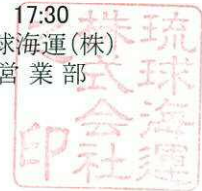 17:30
球海運(株)
営 業 部
琉球海運
株式会社
印